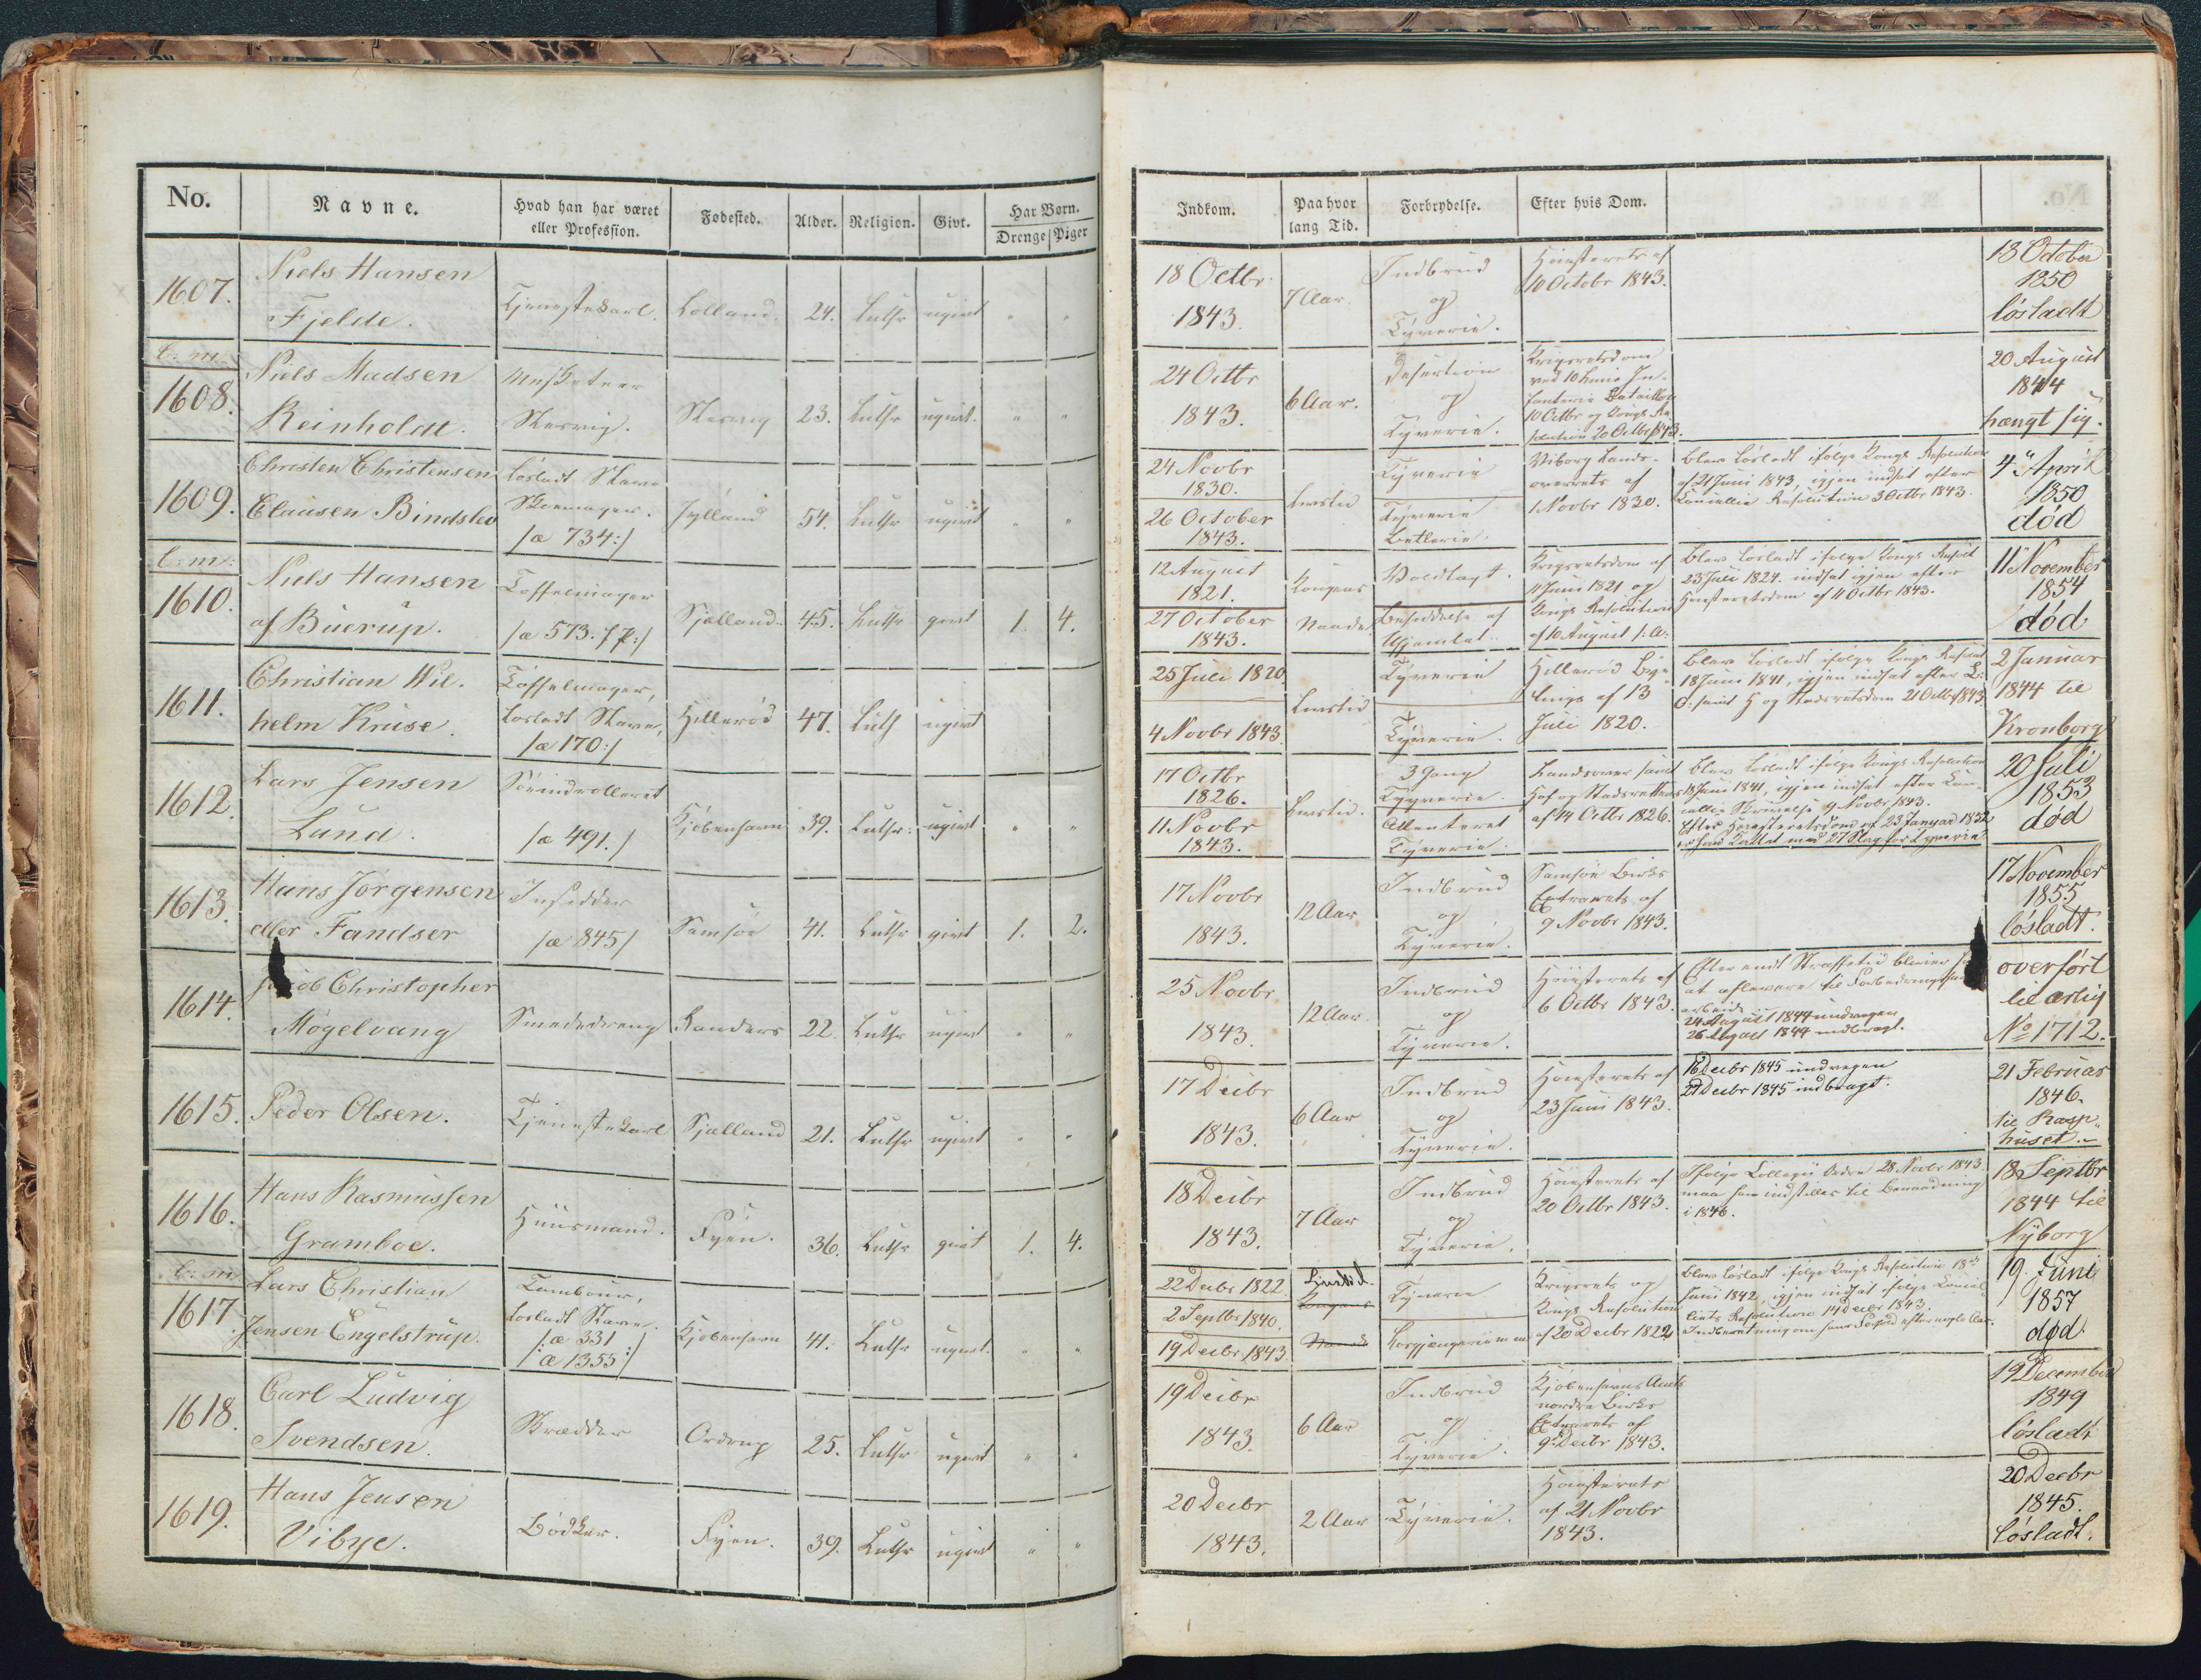 No.
Navne.
Hvad han har været
eller Profession.
Fødested.
Alder.
Religion.
Givt.
Har Børn.
Drenge
Piger
Indkom.
Paa hvor
lang Tid.
Forbrydelse.
Efter hvis Dom.
1607.
Niels Hansen
Fjelde.
Tjenestekarl.
Lolland.
24.
Luthr
ugivt
"
"
18 Octbr.
1843.
7 Aar.
Indbrud
og
Tÿverie.
Høiesterets af
10 Octobr 1843.
18 October
1850
løsladt
b: m:
1608.
Niels Madsen
Reinholdt.
Musketeer
Slesvig.
Slesvig
23.
Luthr
ugivt.
"
"
24 Octbr
1843.
6 Aar.
Desertion
og
Tyverie.
Krigsretsdom
ved 10 Linie In-
fanterie Bataillon
10 Octbr og Kongl. Re-
solution 20 Octbr 1843.
20 August
1844
hængt sig.
1609.
Christen Christensen
Clausen Bindslev
løsladt Slave
Skoemager.
/æ 734:/
Jylland
54.
Luthr
ugivt
"
"
24 Novbr
1830.
26 October
1843.
Livstid
Tyverie
Tyverie
Betlerie.
Viborg Lands-
overrets af
1 Novbr 1830.
Blev løsladt ifølge Kongl. Resolution
af 21 Juni 1843, igjen indsat efter
Cancellie Resolution 3 Octbr 1843.
4 April
1850
død
b: m:
1610.
Niels Hansen
af Buerup.
Toffelmager
/æ 573. f P:/
Sjælland
45.
Luthr
givt
1.
4.
12 August
1821.
27 October
1843.
Kongens
Naade.
Voldtægt.
Besiddelse af
Krigsretsdom af
11 Juni 1821 og
Kongl. Resolution
af 10 August s: A:
Blev løsladt ifølge Kongl. Resolut
23 Juli 1824. indsat igjen efter
Høiesteretsdom af 11 Octbr 1843.
11 November
1854
død
1611.
Christian Wil-
helm Kruse.
Toffelmager,
Løsladt Slave,
/æ 170:/
Hillerød
47.
Luth
ugivt
25 Juli 1820
4 Novbr 1843.
Livstid
Tyverie
Tyverie.
Hillerød Bye-
tings af 13
Juli 1820.
Blev løsladt ifølge Kongl. Resolut
18 Juni 1841, igjen indsat efter L:
O: samt H og Stadsretsdom 21 Octbr 1843.
2 Januar
1844 til
Kronborg
1612.
Lars Jensen
Lund.
Søeindrolleret
/æ 491./
Kjøbenhavn
39.
Luthr:
ugivt
"
"
17 Octbr
1826.
11 Novbr
1843.
Livstid.
3 Gang
Tyverie.
Attenteret
Tyverie.
Landsover samt
Hof og Stadsrettens
af 14 Octbr 1826.
Blev løsladt ifølge Kongl. Resolution
18 Juni 1841, igjen indsat efter Can-
cellie Skrivelse 9 Novbr 1843.
Efter Høiesteretsdom af 23 Januar 1852
er han Kattet med 27 Slag for Tyverie
20 Juli
1853
død
1613.
Hans Jørgensen
eller Fandser
Insidder
/æ 845/
Samsøe
41.
Luthr
givt
1.
2.
17 Novbr
1843.
12 Aar
Indbrud
og
Tyverie.
Samsøe Birks
Extrarets af
9 Novbr 1843.
17 November
1855
løsladt.
1614.
Jacob Christopher
Møgelvang
Smededreng
Randers
22.
Luthr
ugivt
"
"
25 Novbr
1843.
12 Aar.
Indbrud
og
Tyverie.
Høiesterets af
6 Octbr 1843.
Efter endt Straffetid bliver
at aflevere til Forbedringshuus
arbeide
24 August 1844 undvegen
26 August 1844 indbragt.
overført
til ærlig
No 1712.
1615.
Peder Olsen.
Tjenestekarl
Sjælland
21.
Luthr
ugivt
"
"
17 Decbr
1843.
6 Aar
Indbrud
og
Tyverie.
Høiesterets af
23 Juni 1843.
16 Decbr 1845 undvegen
27 Decbr 1845 indbragt.
21 Februar
1846.
til Rasp-
huset.
1616.
Hans Rasmussen
Gramboe.
Huusmand.
Fyen.
36.
Luthr
givt
1.
4.
18 Decbr
1843.
7 Aar
Indbrud
og
Tyverie.
Høiesterets af
20 Octbr 1843.
Ifølge Collegii Ordre 28 Novbr 1843
maa han indstilles til Benaadning
i 1846.
18 Septbr
1844 til
Nÿborg
b: m:
1617.
Lars Christian
Jensen Engelstrup.
Tambour,
løsladt Slave.
/æ 331
:æ 1355:/
Kjøbenhavn
41.
Luthr
ugivt.
"
"
22 Decbr 1822.
2 Septbr 1840.
19 Decbr 1843
Livstid.
Kongens
Naade
Tyverie
Krigsrets og
Kongl. Resolution
af 20 Decbr 1822
Blev løsladt ifølge Kongl. Resolution 18de
Juni 1842, igjen indsat ifølge Cancel-
liets Resolution 14 Decbr 1843.
Indberetning om hans Forhold efter nogle Aar.
19. Juni
1857
død.
1618.
Carl Ludvig
Svendsen.
Skrædder
Ordrup
25.
Luthr
ugivt
"
"
19 Decbr
1843.
6 Aar
Indbrud
og
Tyverie.
Kjøbenhavns Amts
nordre Birks
Extrarets af
9 Decbr 1843.
19 December
1849
løsladt
1619.
Hans Jensen
Vibye.
Bødker.
Fyen.
39.
Luthr
ugivt
"
"
20 Decbr
1843.
2 Aar
Tyverie.
Høiesterets
af 21 Novbr
1843.
20 Decbr
1845.
løsladt.